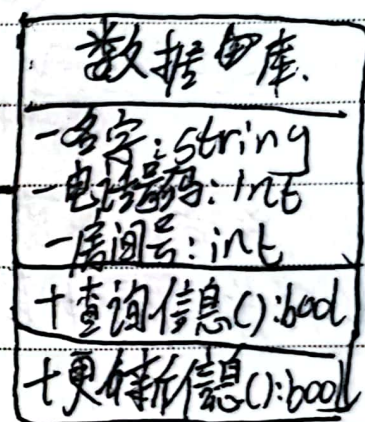 数据库
-名字:string
-电话号码:int
-房间号:int
+查询信息():bool
+更新信息():bool